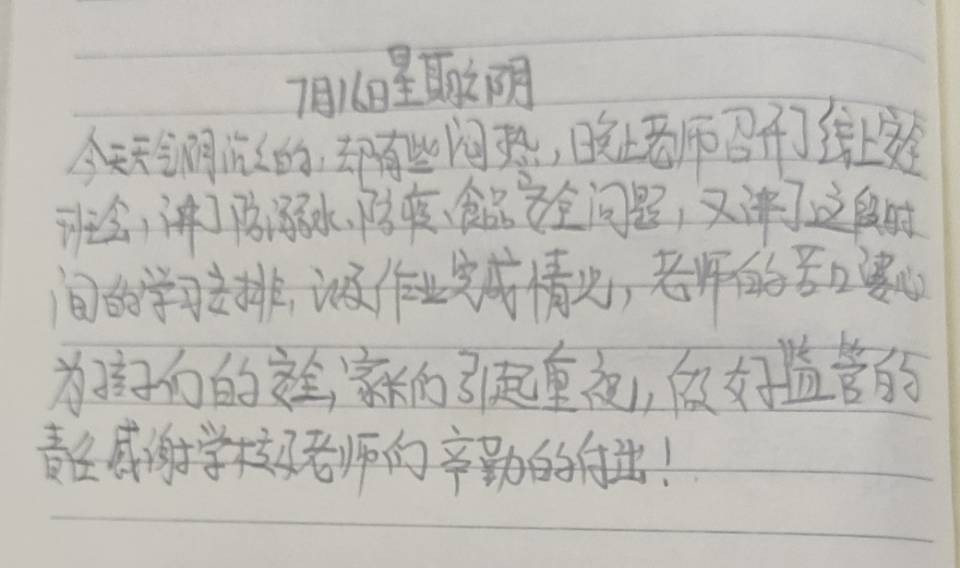 7月16日 星期六 阴
今天天气阴沉沉的,却有些闷热,晚上老师召开了线上安全
班会,讲了防溺水、防疫、食品安全问题,又讲了这段时
间的学习安排,以及作业完成情况,老师们的苦口婆心
为孩子们的安全,家长们引起重视,做好监管的
责任感谢学校及老师们辛勤的付出!